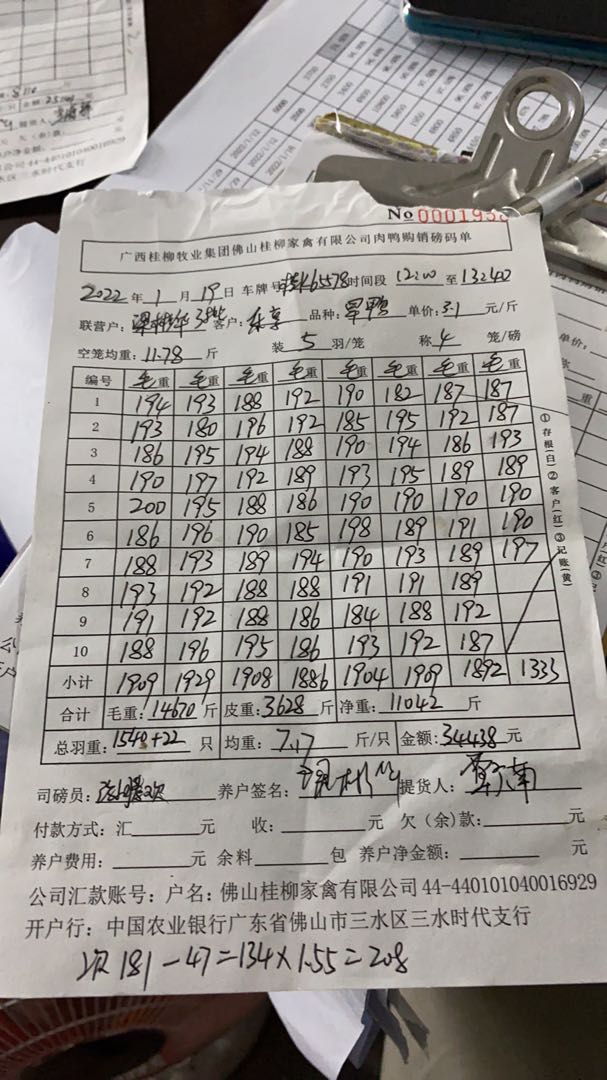 No 0001938
广西桂柳牧业集团佛山桂柳家禽有限公司肉鸭购销磅码单
2022年1月19日 车牌号 6578 时间段 12:00 至 13:40
联营户: 客户: 东享 品种: 旱鸭 单价: 3.1 元/斤
空笼均重: 11.78 斤 装 5 羽/笼 称 4 笼/磅
编号 毛重 毛重 毛重 毛重 毛重 毛重 毛重 毛重
1 194 193 188 192 190 182 187 187
2 193 180 196 192 185 195 192 187
3 186 195 194 188 190 194 186 193
4 190 197 192 189 193 195 189 189
5 200 195 188 186 190 190 190 190
6 186 196 190 185 198 189 191 190
7 188 193 189 194 190 193 189 197
8 193 192 188 188 191 191 189
9 191 192 188 186 184 188 192
10 188 196 195 186 193 192 187
小计 1909 1929 1908 1886 1904 1909 1892 1333
合计 毛重: 14670 斤 皮重: 3628 斤 净重: 11042 斤
总羽重: 1540+22 只 均重: 7.17 斤/只 金额: 34438 元
司磅员: 养户签名: 提货人:
付款方式: 汇 元 收: 元 欠(余)款: 元
养户费用: 元 余料 包 养户净金额: 元
公司汇款账号: 户名: 佛山桂柳家禽有限公司 44-440101040016929
开户行: 中国农业银行广东省佛山市三水区三水时代支行
次 181-47=134×1.55=208
①存根(白)②客户(红)③记账(黄)